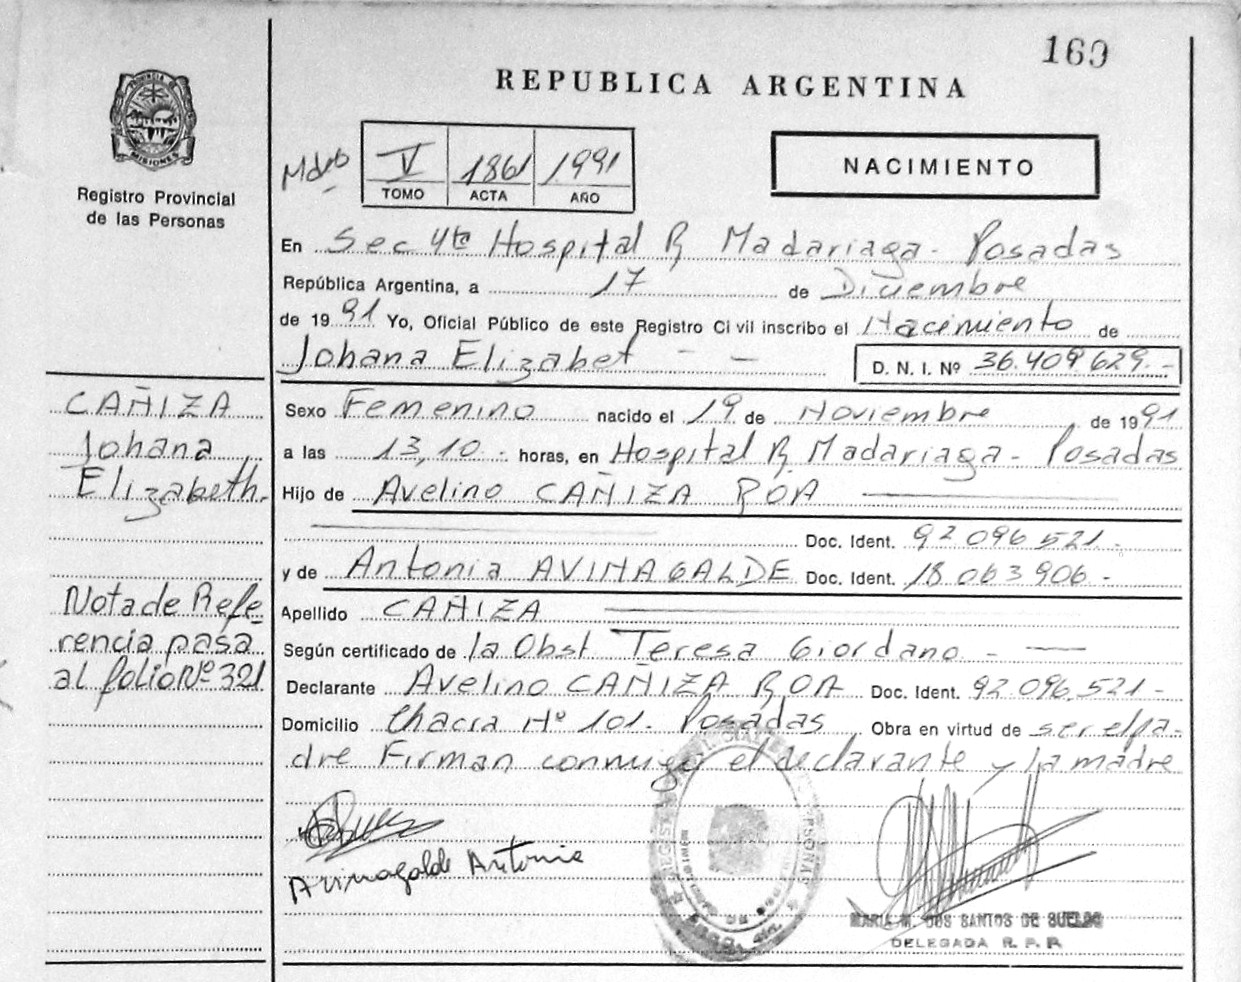 169
REPUBLICA ARGENTINA
PROVINCIA DE
MISIONES
Registro Provincial
de las Personas
V 1861 1991
TOMO ACTA AÑO
NACIMIENTO
En Sec 4ta Hospital R Madariaga - Posadas
República Argentina, a 17 de Diciembre
de 1991 Yo, Oficial Público de este Registro Civil inscribo el Nacimiento de
Johana Elizabet - - D. N. I. Nº 36.409629.-
CAÑIZA
Johana
Elizabeth.
Nota de Refe-
rencia pasa
al folio Nº 321
Sexo Femenino nacido el 19 de Noviembre de 1991
a las 13,10 - horas, en Hospital R Madariaga - Posadas
Hijo de Avelino CAÑIZA ROA
Doc. Ident. 92096521-
y de Antonia AVINAGALDE Doc. Ident. 18.063906.-
Apellido CAÑIZA
Según certificado de la Obst. Teresa Giordano - -
Declarante Avelino CAÑIZA ROA Doc. Ident. 92.096.521-
Domicilio Chacra Nº 101. Posadas Obra en virtud de ser el pa-
dre Firman conmigo el declarante y la madre
Avinagalde Antonia
MARIA M. DOS SANTOS DE SUELDO
DELEGADA R. P. P.